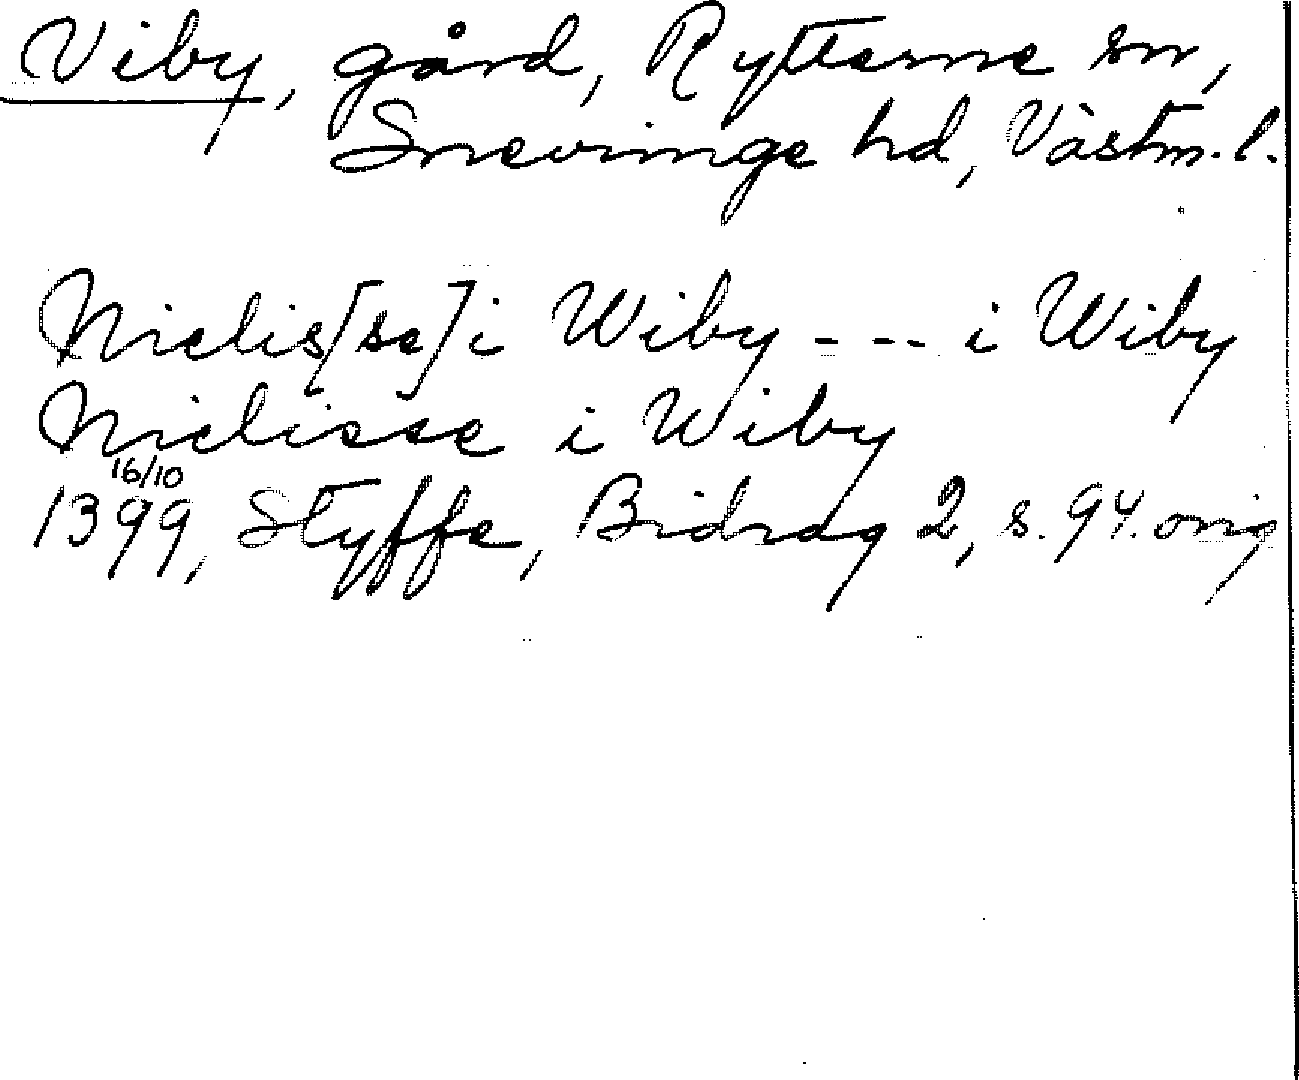 Viby, gård, Rytterne sn,
Snevringe hd, Västm. l.
Nielis[se] i Wiby - - - i Wiby
Nielisse i Wiby
16/10
1399, Styffe, Bidrag 2, s. 94. orig